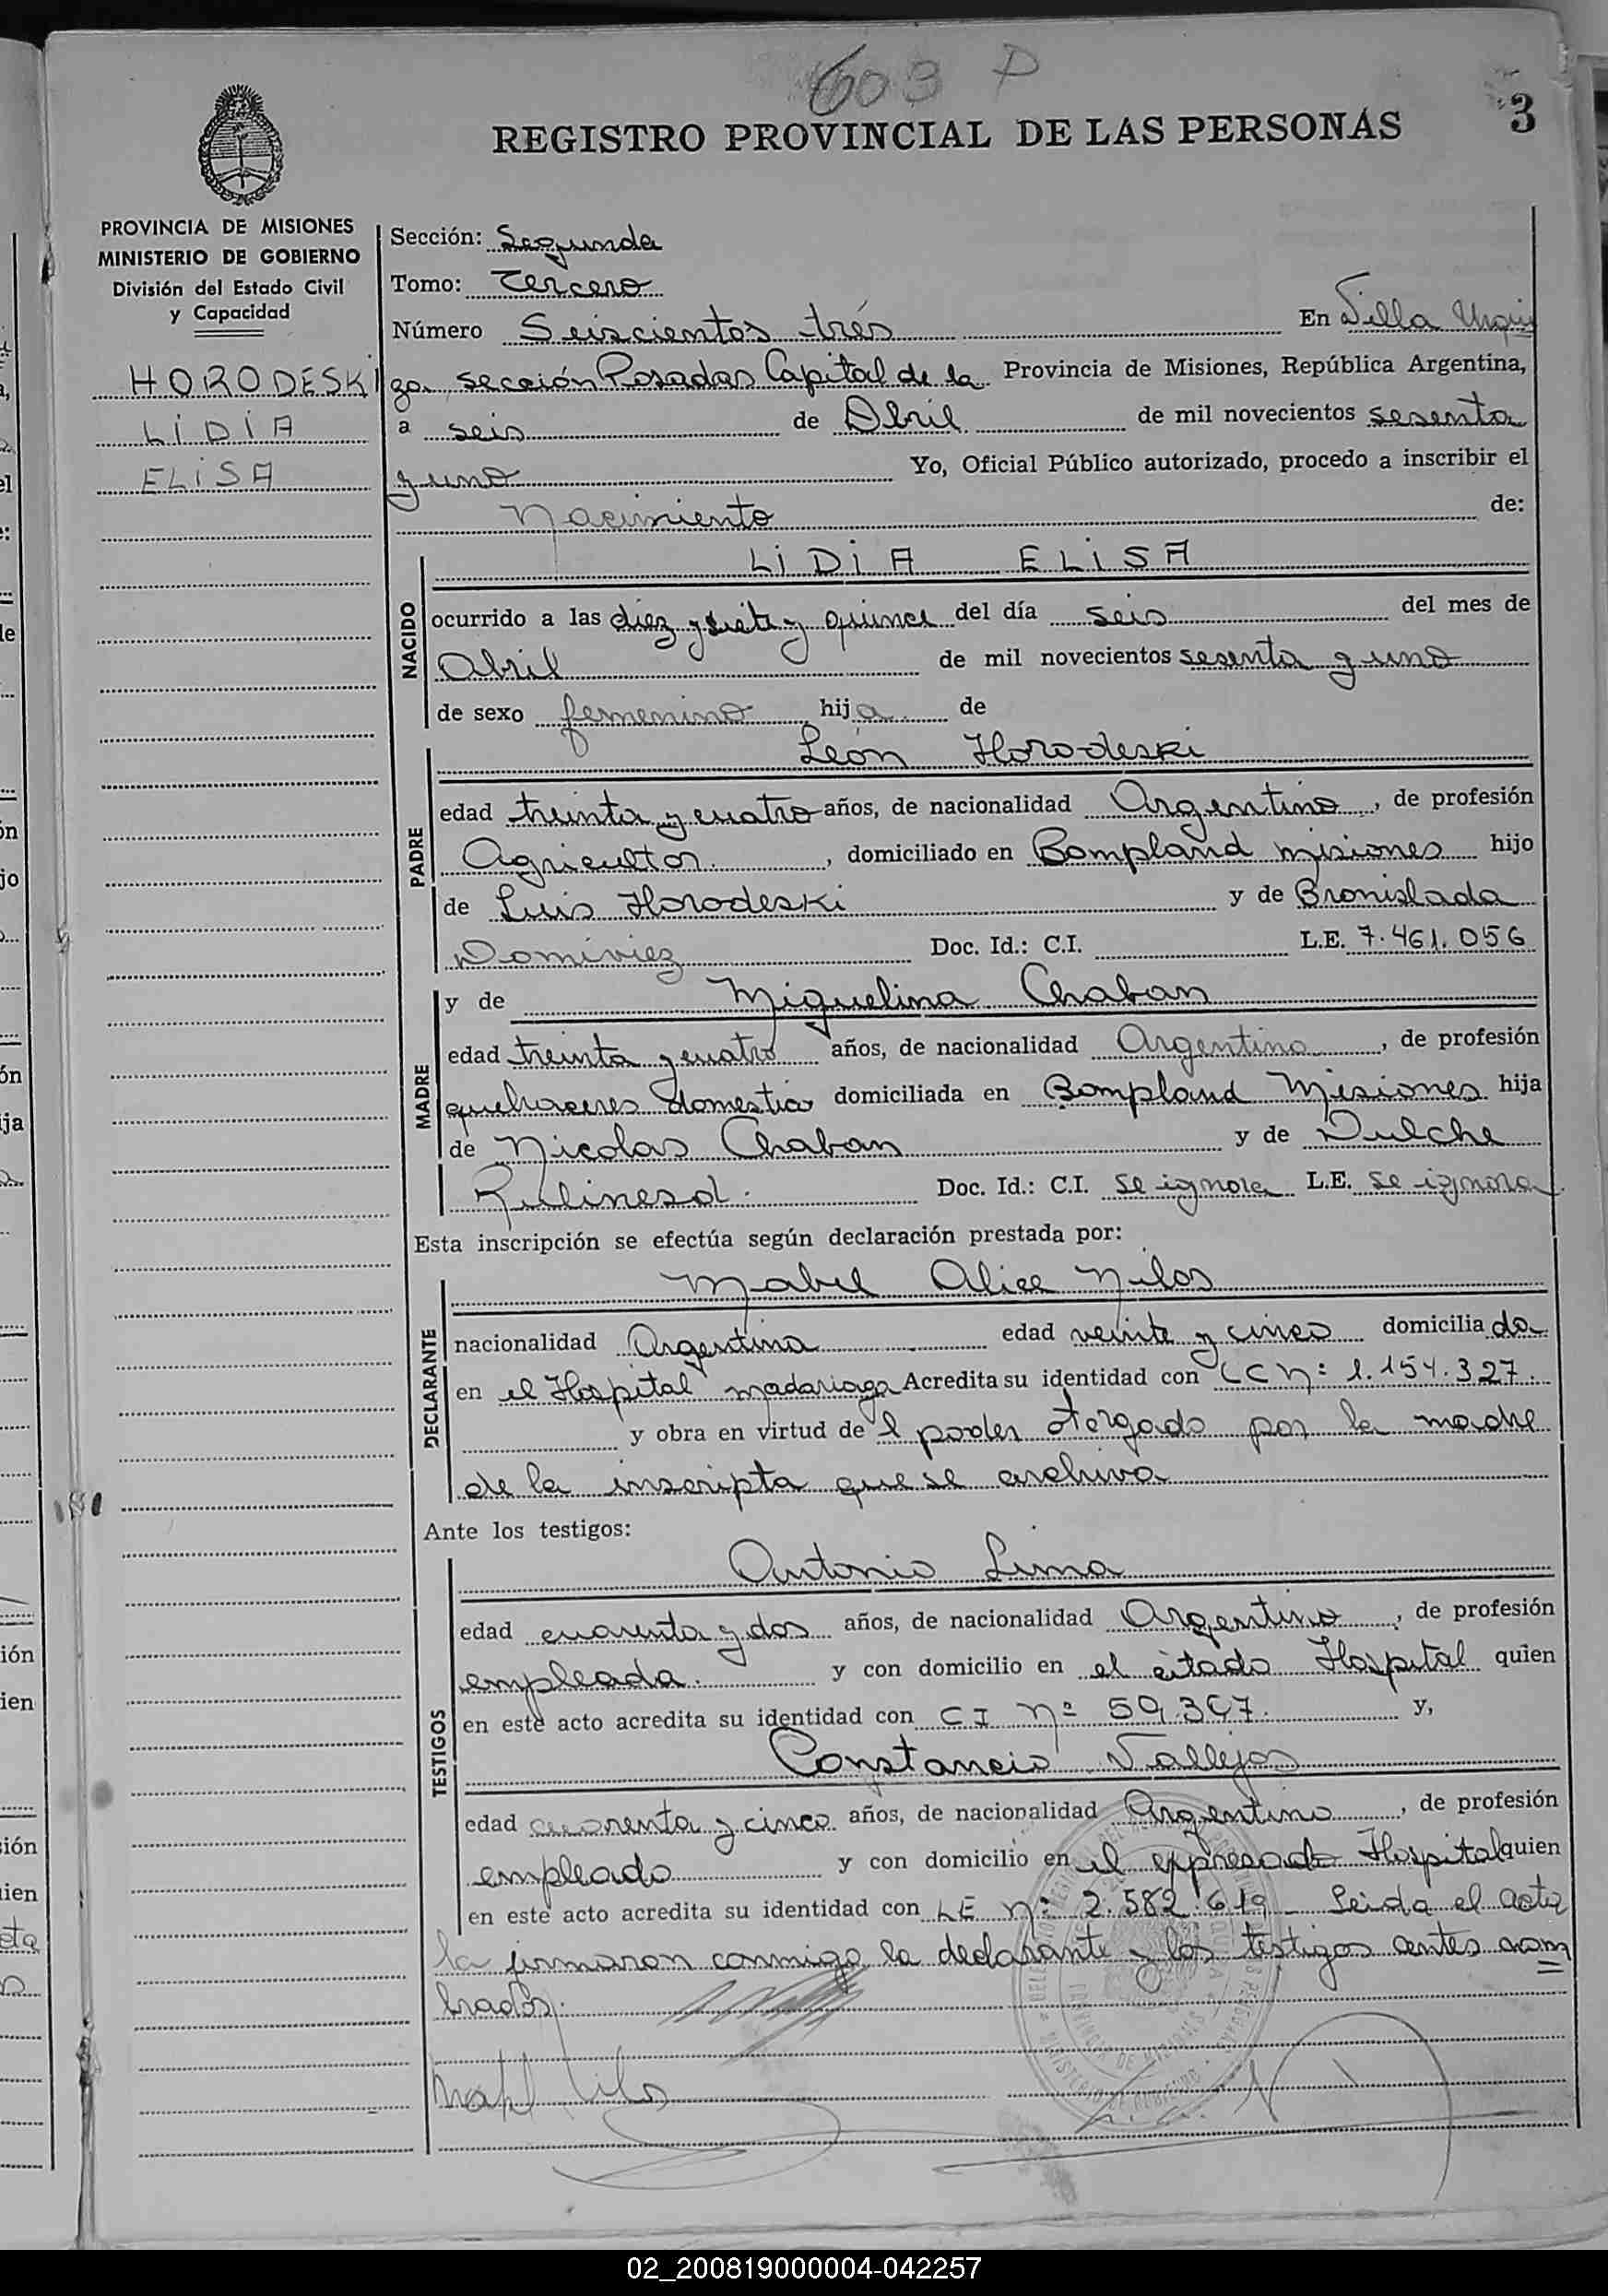 603 P
3
REGISTRO PROVINCIAL DE LAS PERSONAS
PROVINCIA DE MISIONES
MINISTERIO DE GOBIERNO
División del Estado Civil
y Capacidad
HORODESKI
LIDIA
ELISA
Sección: Segunda
Tomo: Tercero
Número Seiscientos trés En Villa Urqui
za sección Posadas Capital de la Provincia de Misiones, República Argentina,
a seis de Abril de mil novecientos sesenta
y uno Yo, Oficial Público autorizado, procedo a inscribir el
Nacimiento de:
NACIDO
LIDIA ELISA
ocurrido a las diez y siete y quince del día seis del mes de
Abril de mil novecientos sesenta y uno
de sexo femenino hija de
PADRE
León Horodeski
edad treinta y cuatro años, de nacionalidad Argentino, de profesión
Agricultor, domiciliado en Bompland misiones hijo
de Luis Horodeski y de Bronislada
Doc. Id.: C.I. L.E. 7.461.056
MADRE
y de Miguelina Chaban
edad treinta y cuatro años, de nacionalidad Argentina, de profesión
quehaceres domestico domiciliada en Bompland Misiones hija
de Nicolas Chaban y de Dulche
Doc. Id.: C.I. se ignora L.E. se ignora
Esta inscripción se efectúa según declaración prestada por:
DECLARANTE
Mabel Alice Nilos
nacionalidad Argentina edad veinte y cinco domiciliada
en el Hospital madariaga Acredita su identidad con LC Nº 1.154.327.
y obra en virtud del poder otorgado por la madre
de la inscripta que se archiva
Ante los testigos:
TESTIGOS
Antonio Lima
edad cuarenta y dos años, de nacionalidad Argentino, de profesión
empleada. y con domicilio en el citado Hospital quien
en este acto acredita su identidad con CI Nº 59.397. y,
Constancio Vallejos
edad cuarenta y cinco años, de nacionalidad Argentino, de profesión
empleado y con domicilio en el expresado Hospital quien
en este acto acredita su identidad con LE Nº 2.582.619 - Leida el acta
la firmaron conmigo la declarante y los testigos antes nom
brados.
02_200819000004-042257